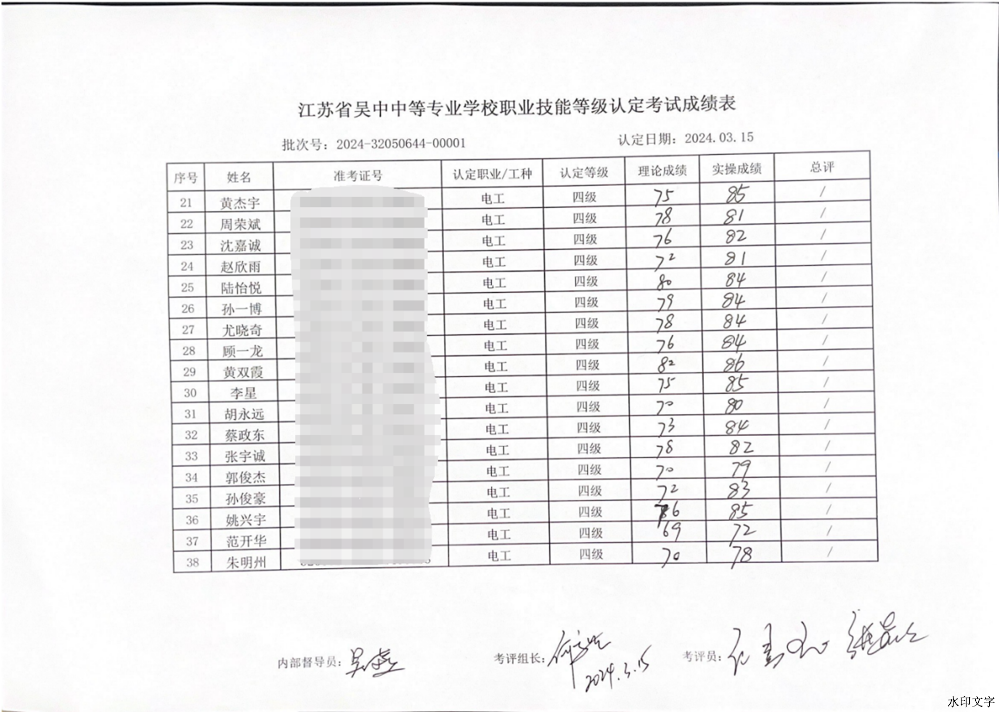 江苏省吴中中等专业学校职业技能等级认定考试成绩表
批次号：2024-32050644-00001 认定日期：2024.03.15
序号 姓名 准考证号 认定职业/工种 认定等级 理论成绩 实操成绩 总评
21 黄杰宇 电工 四级 75 85 /
22 周荣斌 电工 四级 78 81 /
23 沈嘉诚 电工 四级 76 82 /
24 赵欣雨 电工 四级 72 81 /
25 陆怡悦 电工 四级 80 84 /
26 孙一博 电工 四级 79 84 /
27 尤晓奇 电工 四级 78 84 /
28 顾一龙 电工 四级 76 84 /
29 黄双霞 电工 四级 82 86 /
30 李星 电工 四级 75 85 /
31 胡永远 电工 四级 70 80 /
32 蔡政东 电工 四级 73 84 /
33 张宇诚 电工 四级 78 82 /
34 郭俊杰 电工 四级 70 79 /
35 孙俊豪 电工 四级 72 83 /
36 姚兴宇 电工 四级 86 85 /
37 范开华 电工 四级 69 72 /
38 朱明州 电工 四级 70 78 /
内部督导员： 考评组长： 考评员：
2024.3.15
水印文字